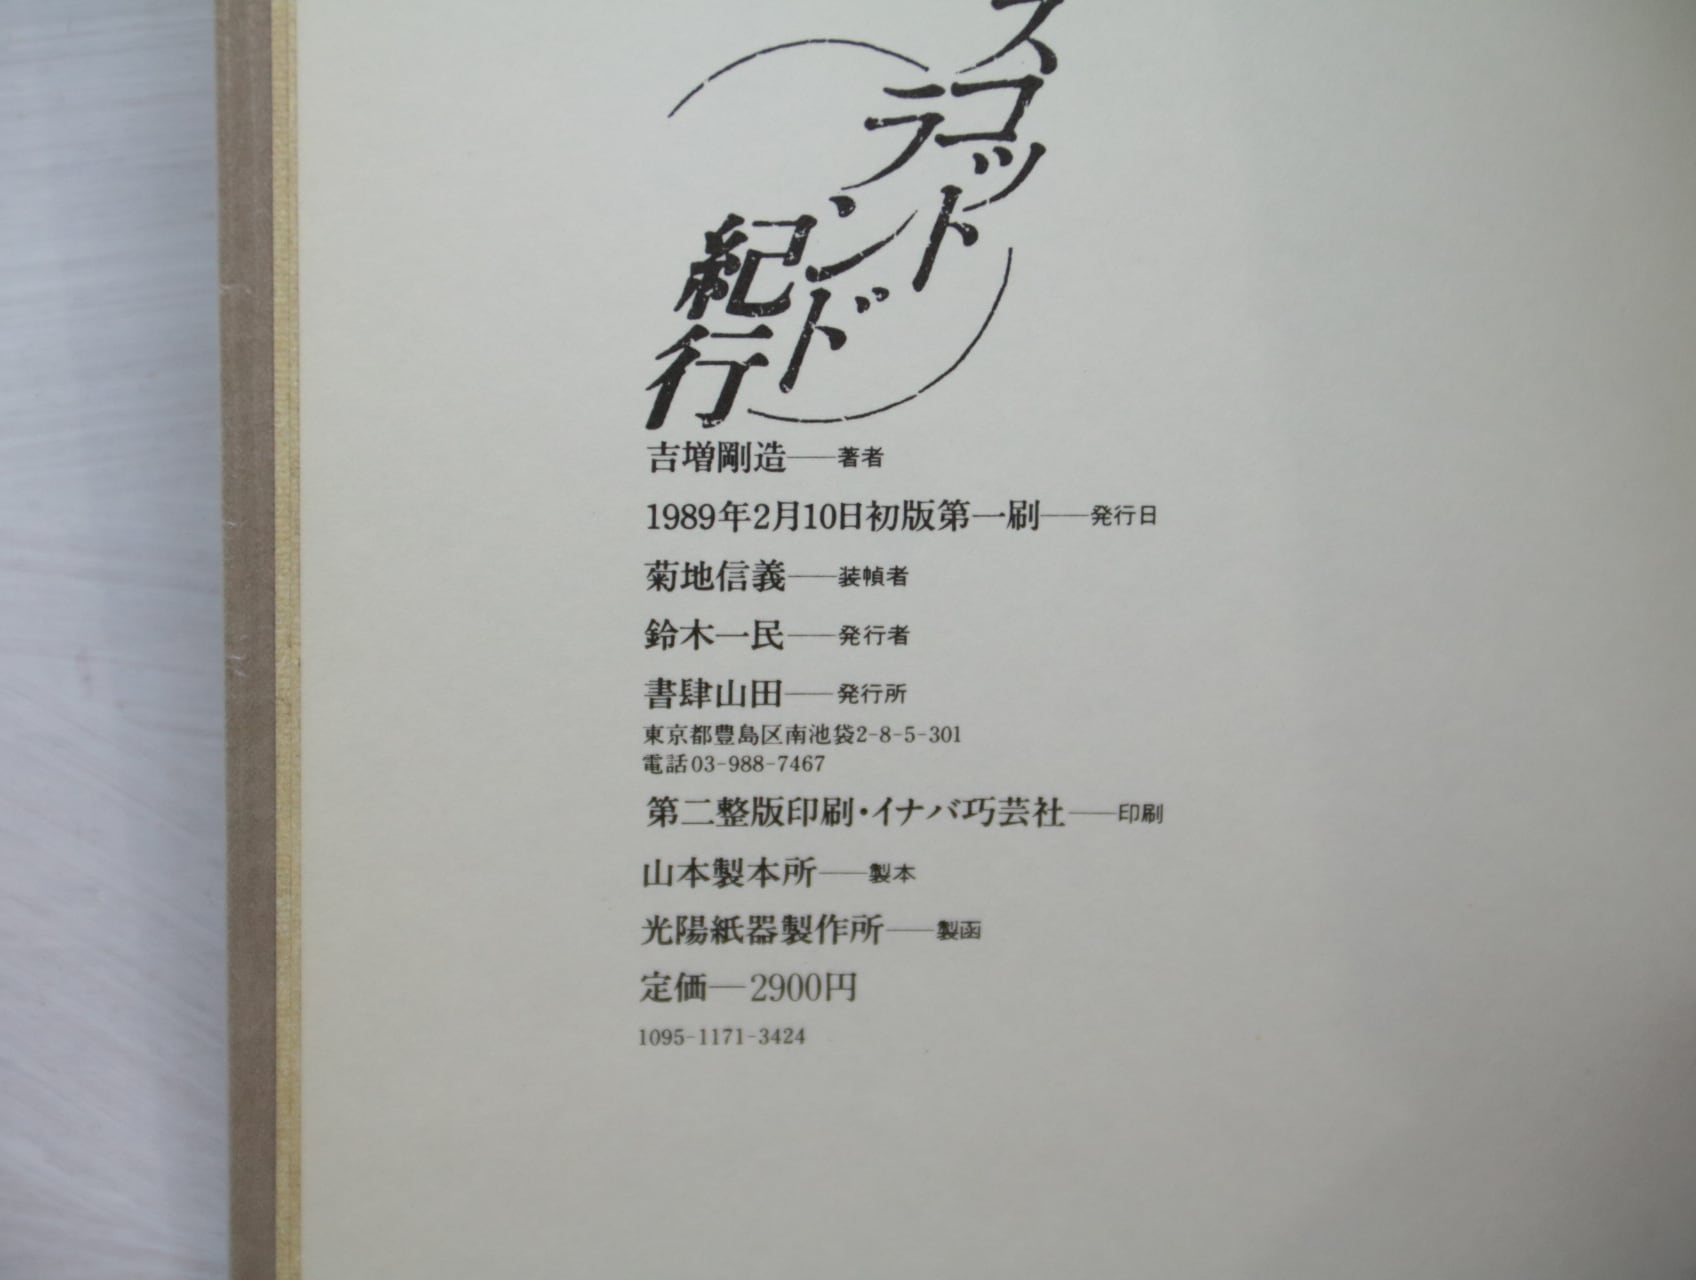 スコットランド紀行
吉増剛造——著者
1989年2月10日初版第一刷——発行日
菊地信義——装幀者
鈴木一民——発行者
書肆山田——発行所
東京都豊島区南池袋2-8-5-301
電話03-988-7467
第二整版印刷・イナバ巧芸社——印刷
山本製本所——製本
光陽紙器製作所——製函
定価—2900円
1095-1171-3424